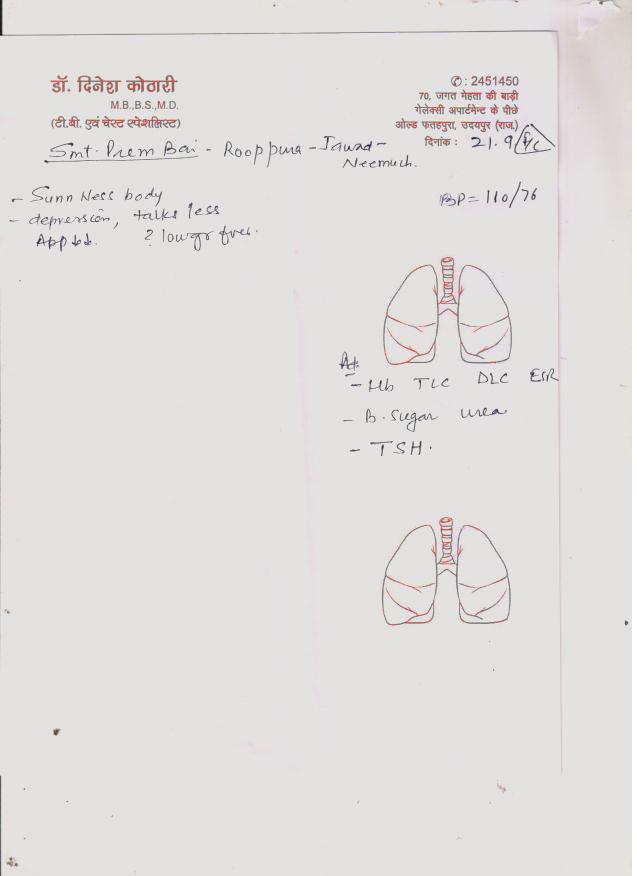 डॉ. दिनेश कोठारी
M.B.,B.S.,M.D.
(टी.बी. एवं चेस्ट स्पेशलिस्ट)
✆ : 2451450
70, जगत मेहता की बाड़ी
गेलेक्सी अपार्टमेन्ट के पीछे
ओल्ड फतहपुरा, उदयपुर (राज.)
दिनांक : 21.9
Smt. Prem Bai - Rooppura - Jawad -
Neemuch.
- Sunn Ness body
- depression, talks less
App ↓↓. ? low gr fver.
BP = 110/76
- Hb TLC DLC ESR
- B. Sugar urea
- TSH.